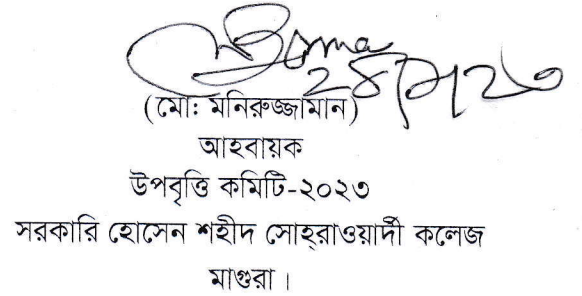 (মো: মনিরুজ্জামান)
আহবায়ক
উপবৃত্তি কমিটি-২০২৩
সরকারি হোসেন শহীদ সোহ্‌রাওয়ার্দী কলেজ
মাগুরা।